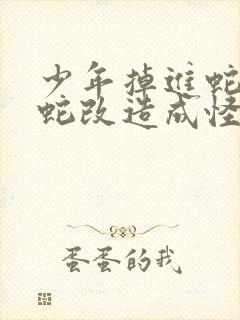 少年掉进蛇
蛇改造成怪
蛋蛋的我